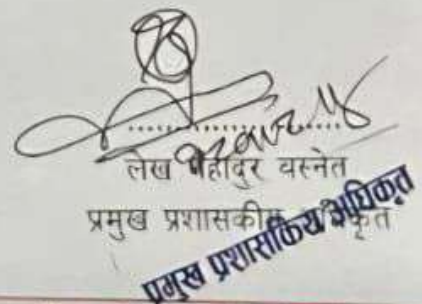 लेख बहादुर वस्नेत
प्रमुख प्रशासकीय अधिकृत
प्रमुख प्रशासकिय अधिकृत